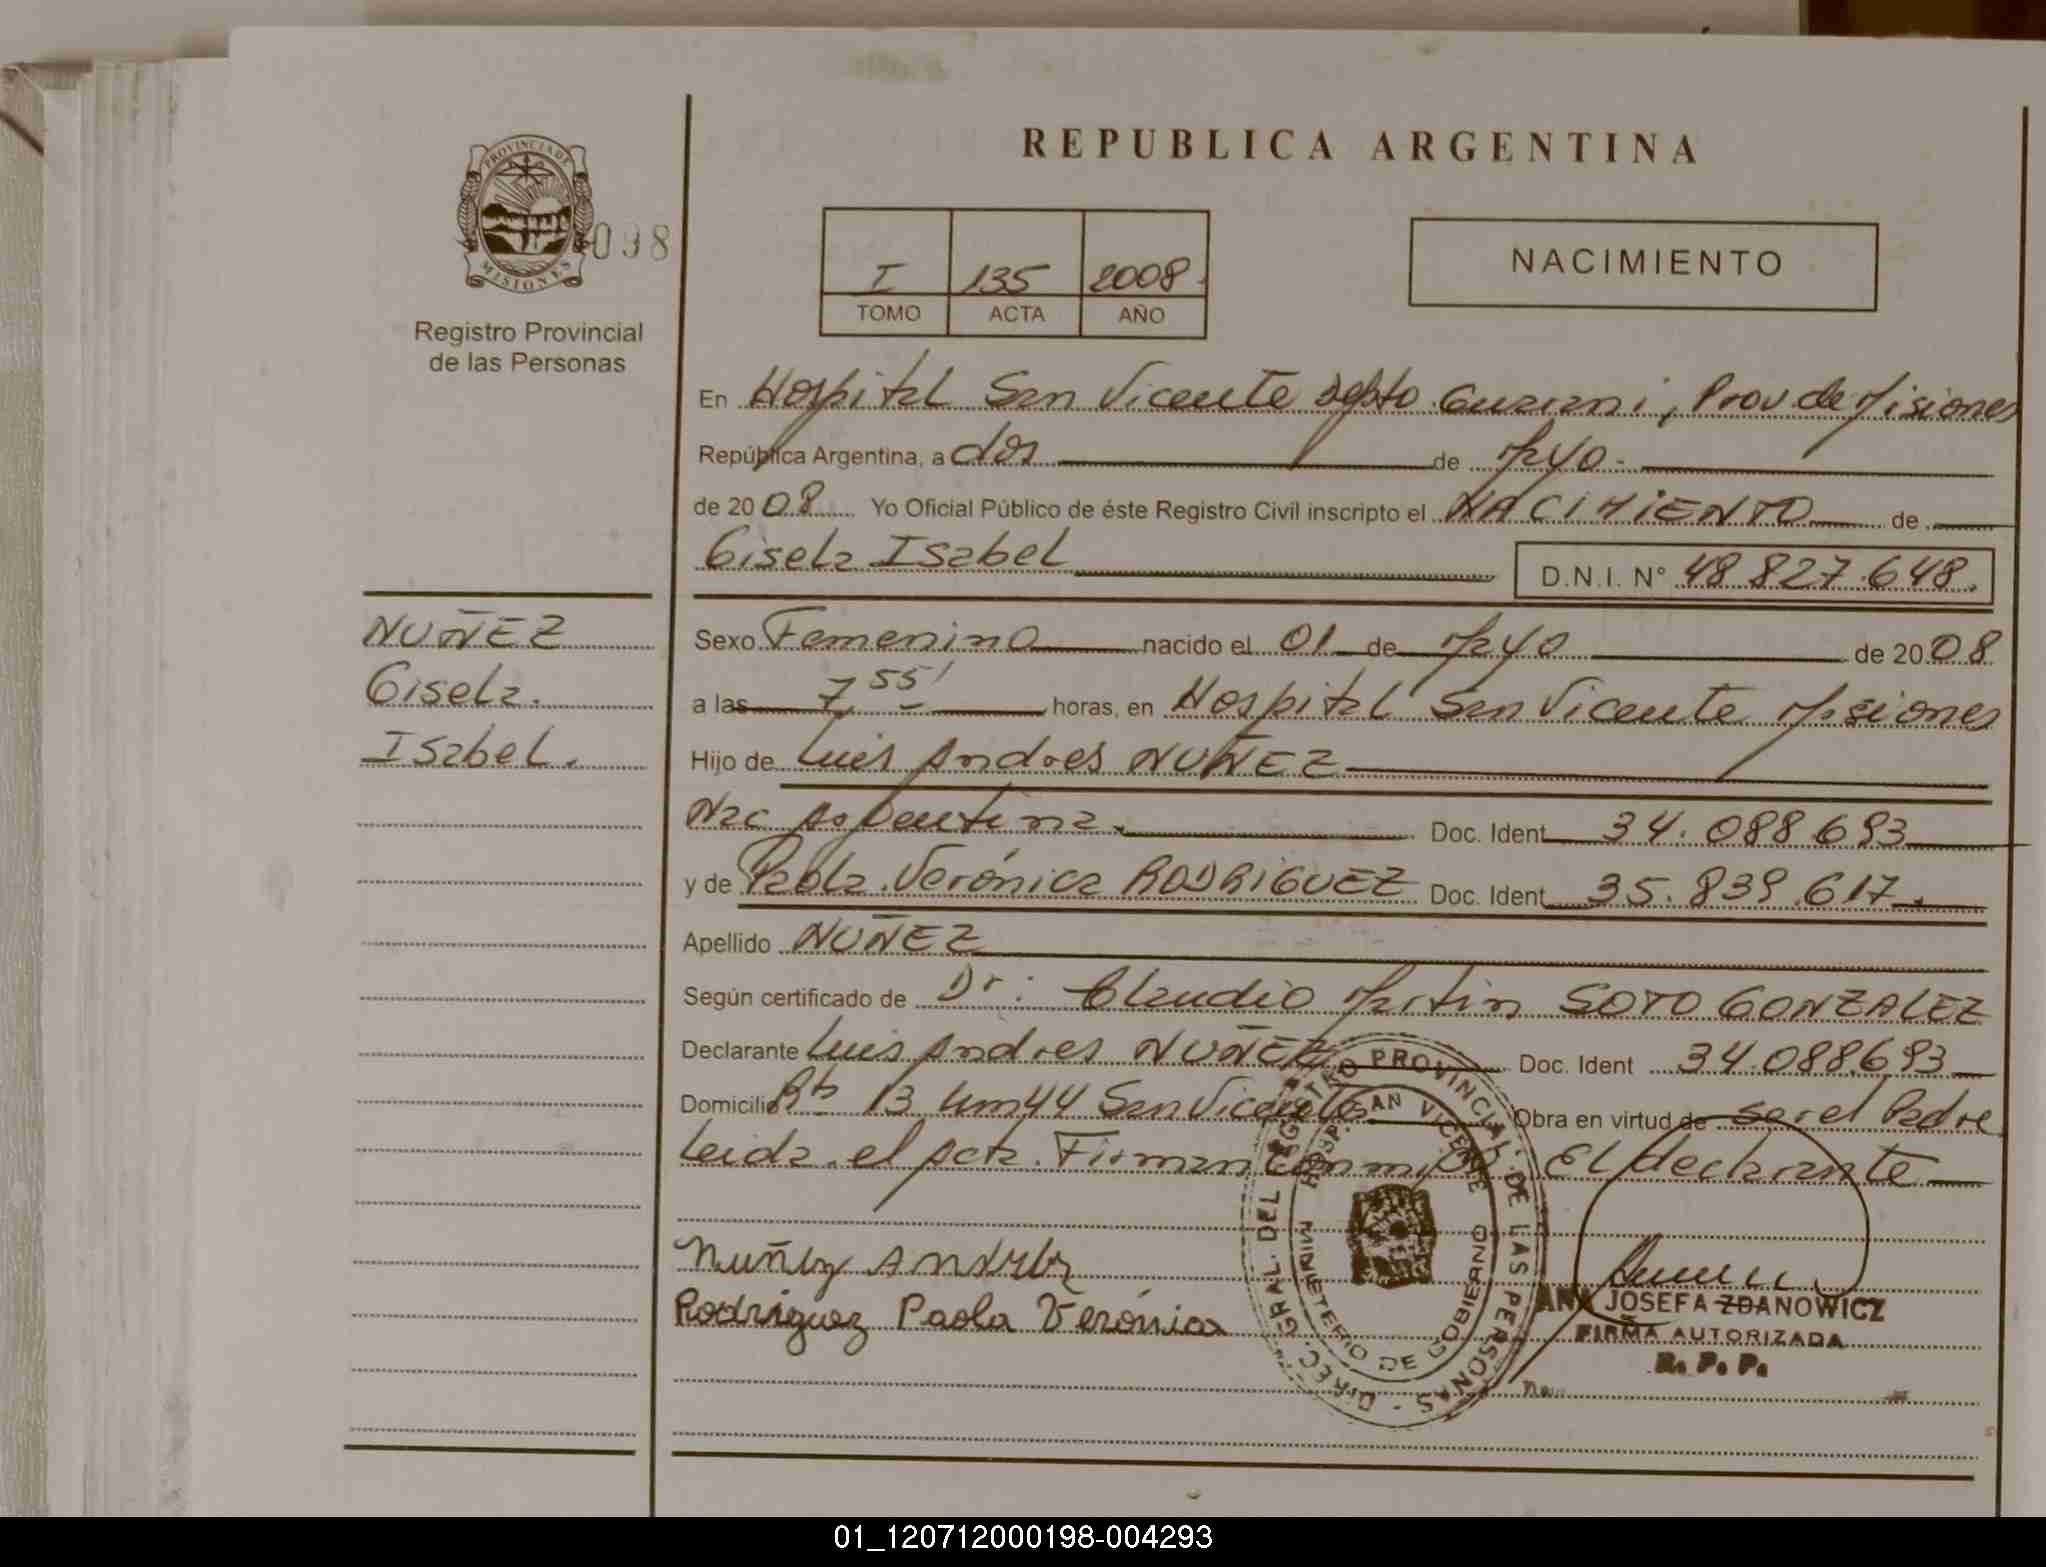 REPUBLICA ARGENTINA
PROVINCIA DE
MISIONES
098
Registro Provincial
de las Personas
I 135 2008
TOMO ACTA AÑO
NACIMIENTO
En Hospital San Vicente Dpto Guarani, Prov de Misiones
República Argentina, a dos de Mayo
de 2008 Yo Oficial Público de éste Registro Civil inscripto el NACIMIENTO de
Gisela Isabel D.N.I. N° 48.827.648.
NUÑEZ
Gisela.
Isabel.
Sexo Femenino nacido el 01 de Mayo de 2008
a las 7 55' horas, en Hospital San Vicente Misiones
Hijo de Luis Andres NUÑEZ
Nac Argentina. Doc. Ident 34.088.693
y de Paola Verónica RODRIGUEZ Doc. Ident 35.839.617.
Apellido NUÑEZ
Según certificado de Dr. Claudio Martin SOTO GONZALEZ
Declarante Luis Andres NUÑEZ Doc. Ident 34.088.693
Domicilio 13 Km 44 San Vicente Obra en virtud de ser el Padre
Leida el Acta. Firman Conmigo El declarante
Nuñez Andres
Rodriguez Paola Verónica
DIREC. GRAL. DEL REGISTRO PROVINCIAL DE LAS PERSONAS -
HOSP. SAN VICENTE
MINISTERIO DE GOBIERNO
ANA JOSEFA ZDANOWICZ
FIRMA AUTORIZADA
R. P. P.
01_120712000198-004293